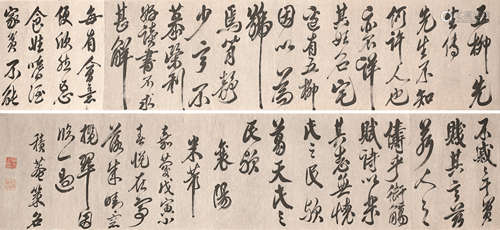 五柳先
生傳
先生不知
何許人也
亦不詳
其姓名宅
邊有五柳
因以為
號
焉閑靜
少言不
慕榮利
好讀書不求
甚解
每有會意
便欣然忘
食性嗜酒
家貧不能
不戚戚于貧
賤其言茲
若人之
儔乎銜觴
賦詩以樂
其志無懷
氏之民歟
葛天氏之
民歟
襄陽
米芾
嘉慶戊寅小
春
攬翠因
臨一過